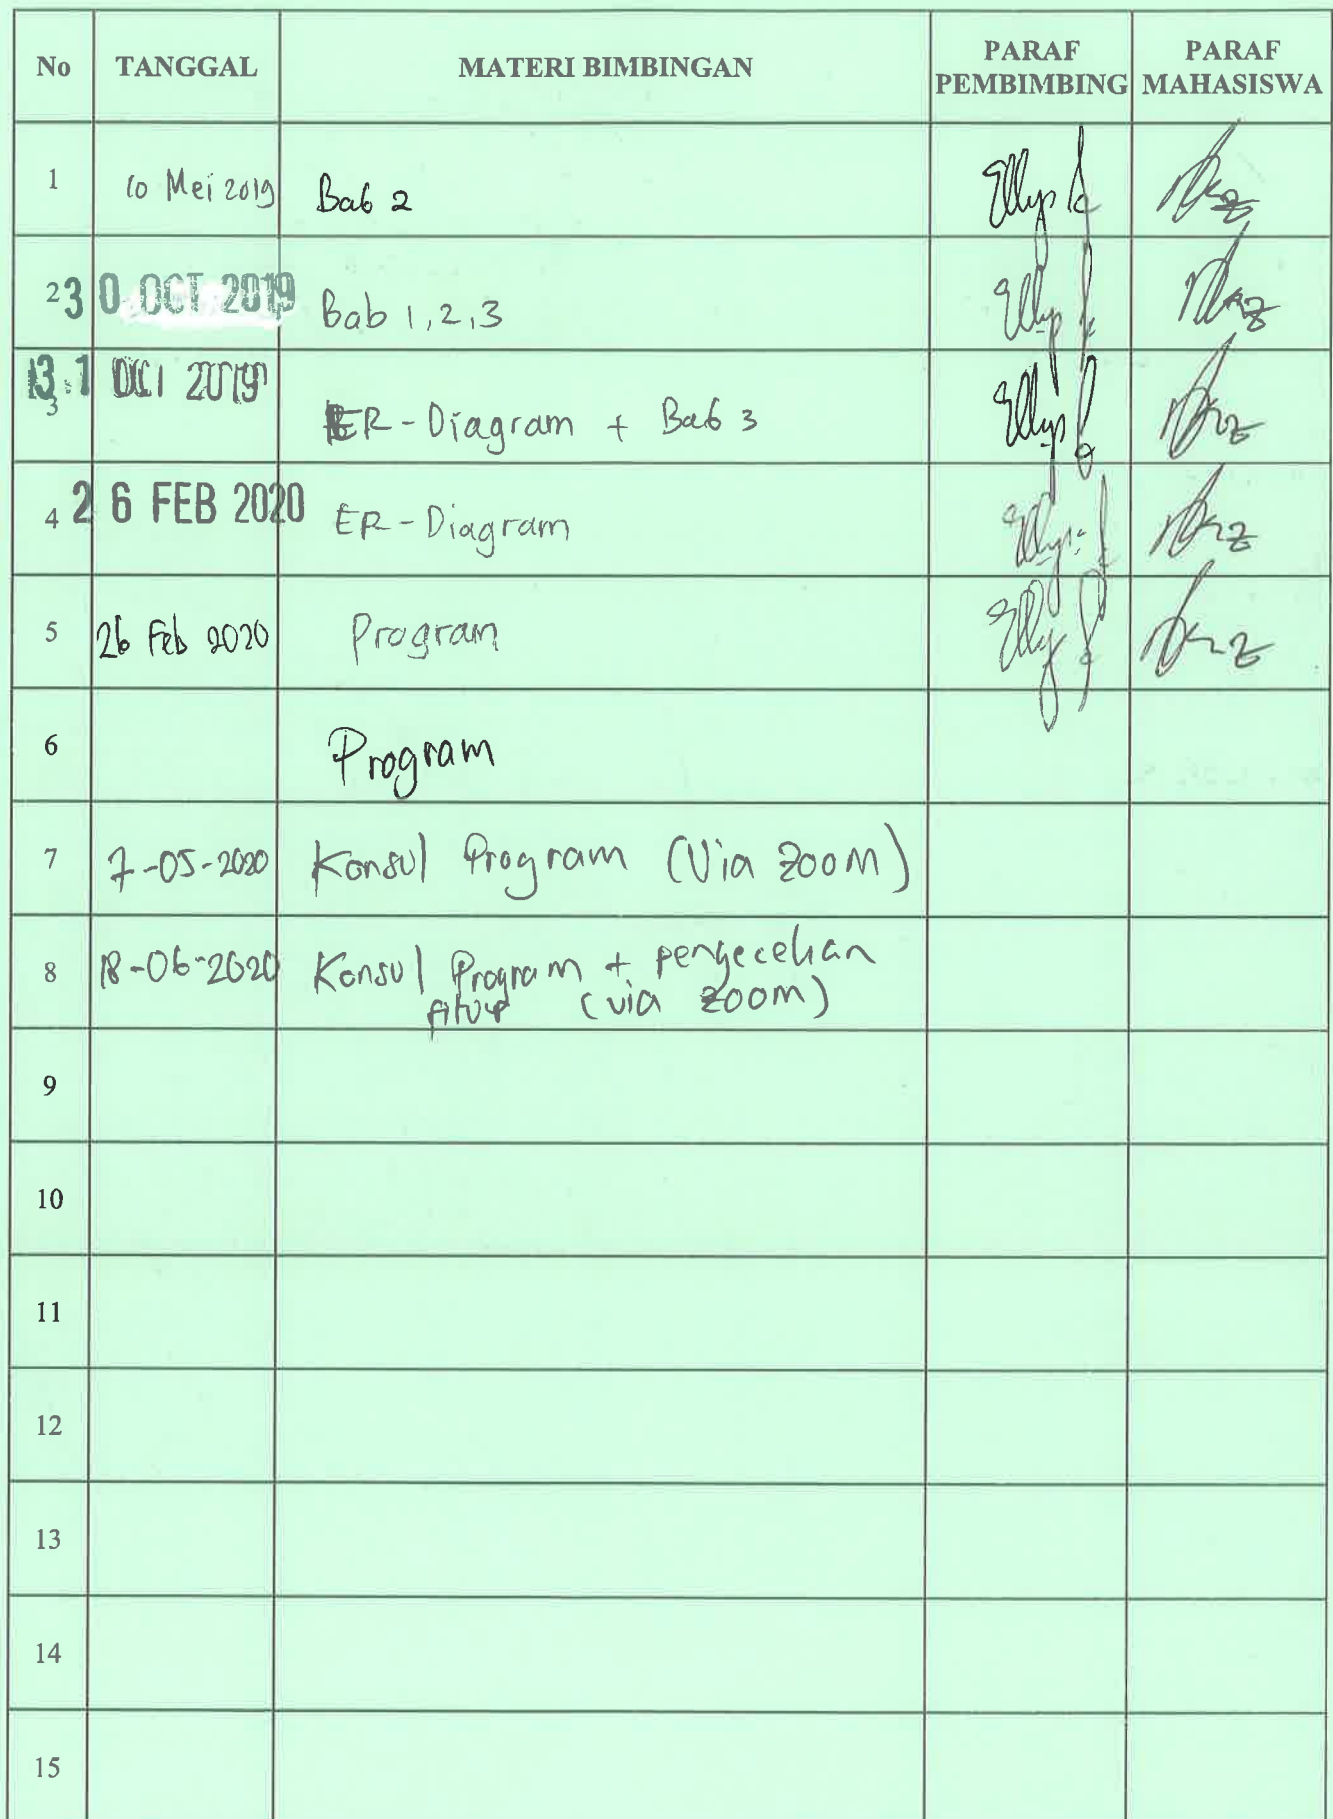 No TANGGAL MATERI BIMBINGAN PARAF PEMBIMBING PARAF MAHASISWA
1 10 Mei 2019 Bab 2
2 30 OCT 2019 Bab 1, 2, 3
3 2019 ER-Diagram + Bab 3
4 26 FEB 2020 ER-Diagram
5 26 Feb 2020 Program
6 Program
7 7-05-2020 Konsul Program (Via Zoom)
8 18-06-2020 Konsul Program + pengecekan
fitur (via zoom)
9
10
11
12
13
14
15